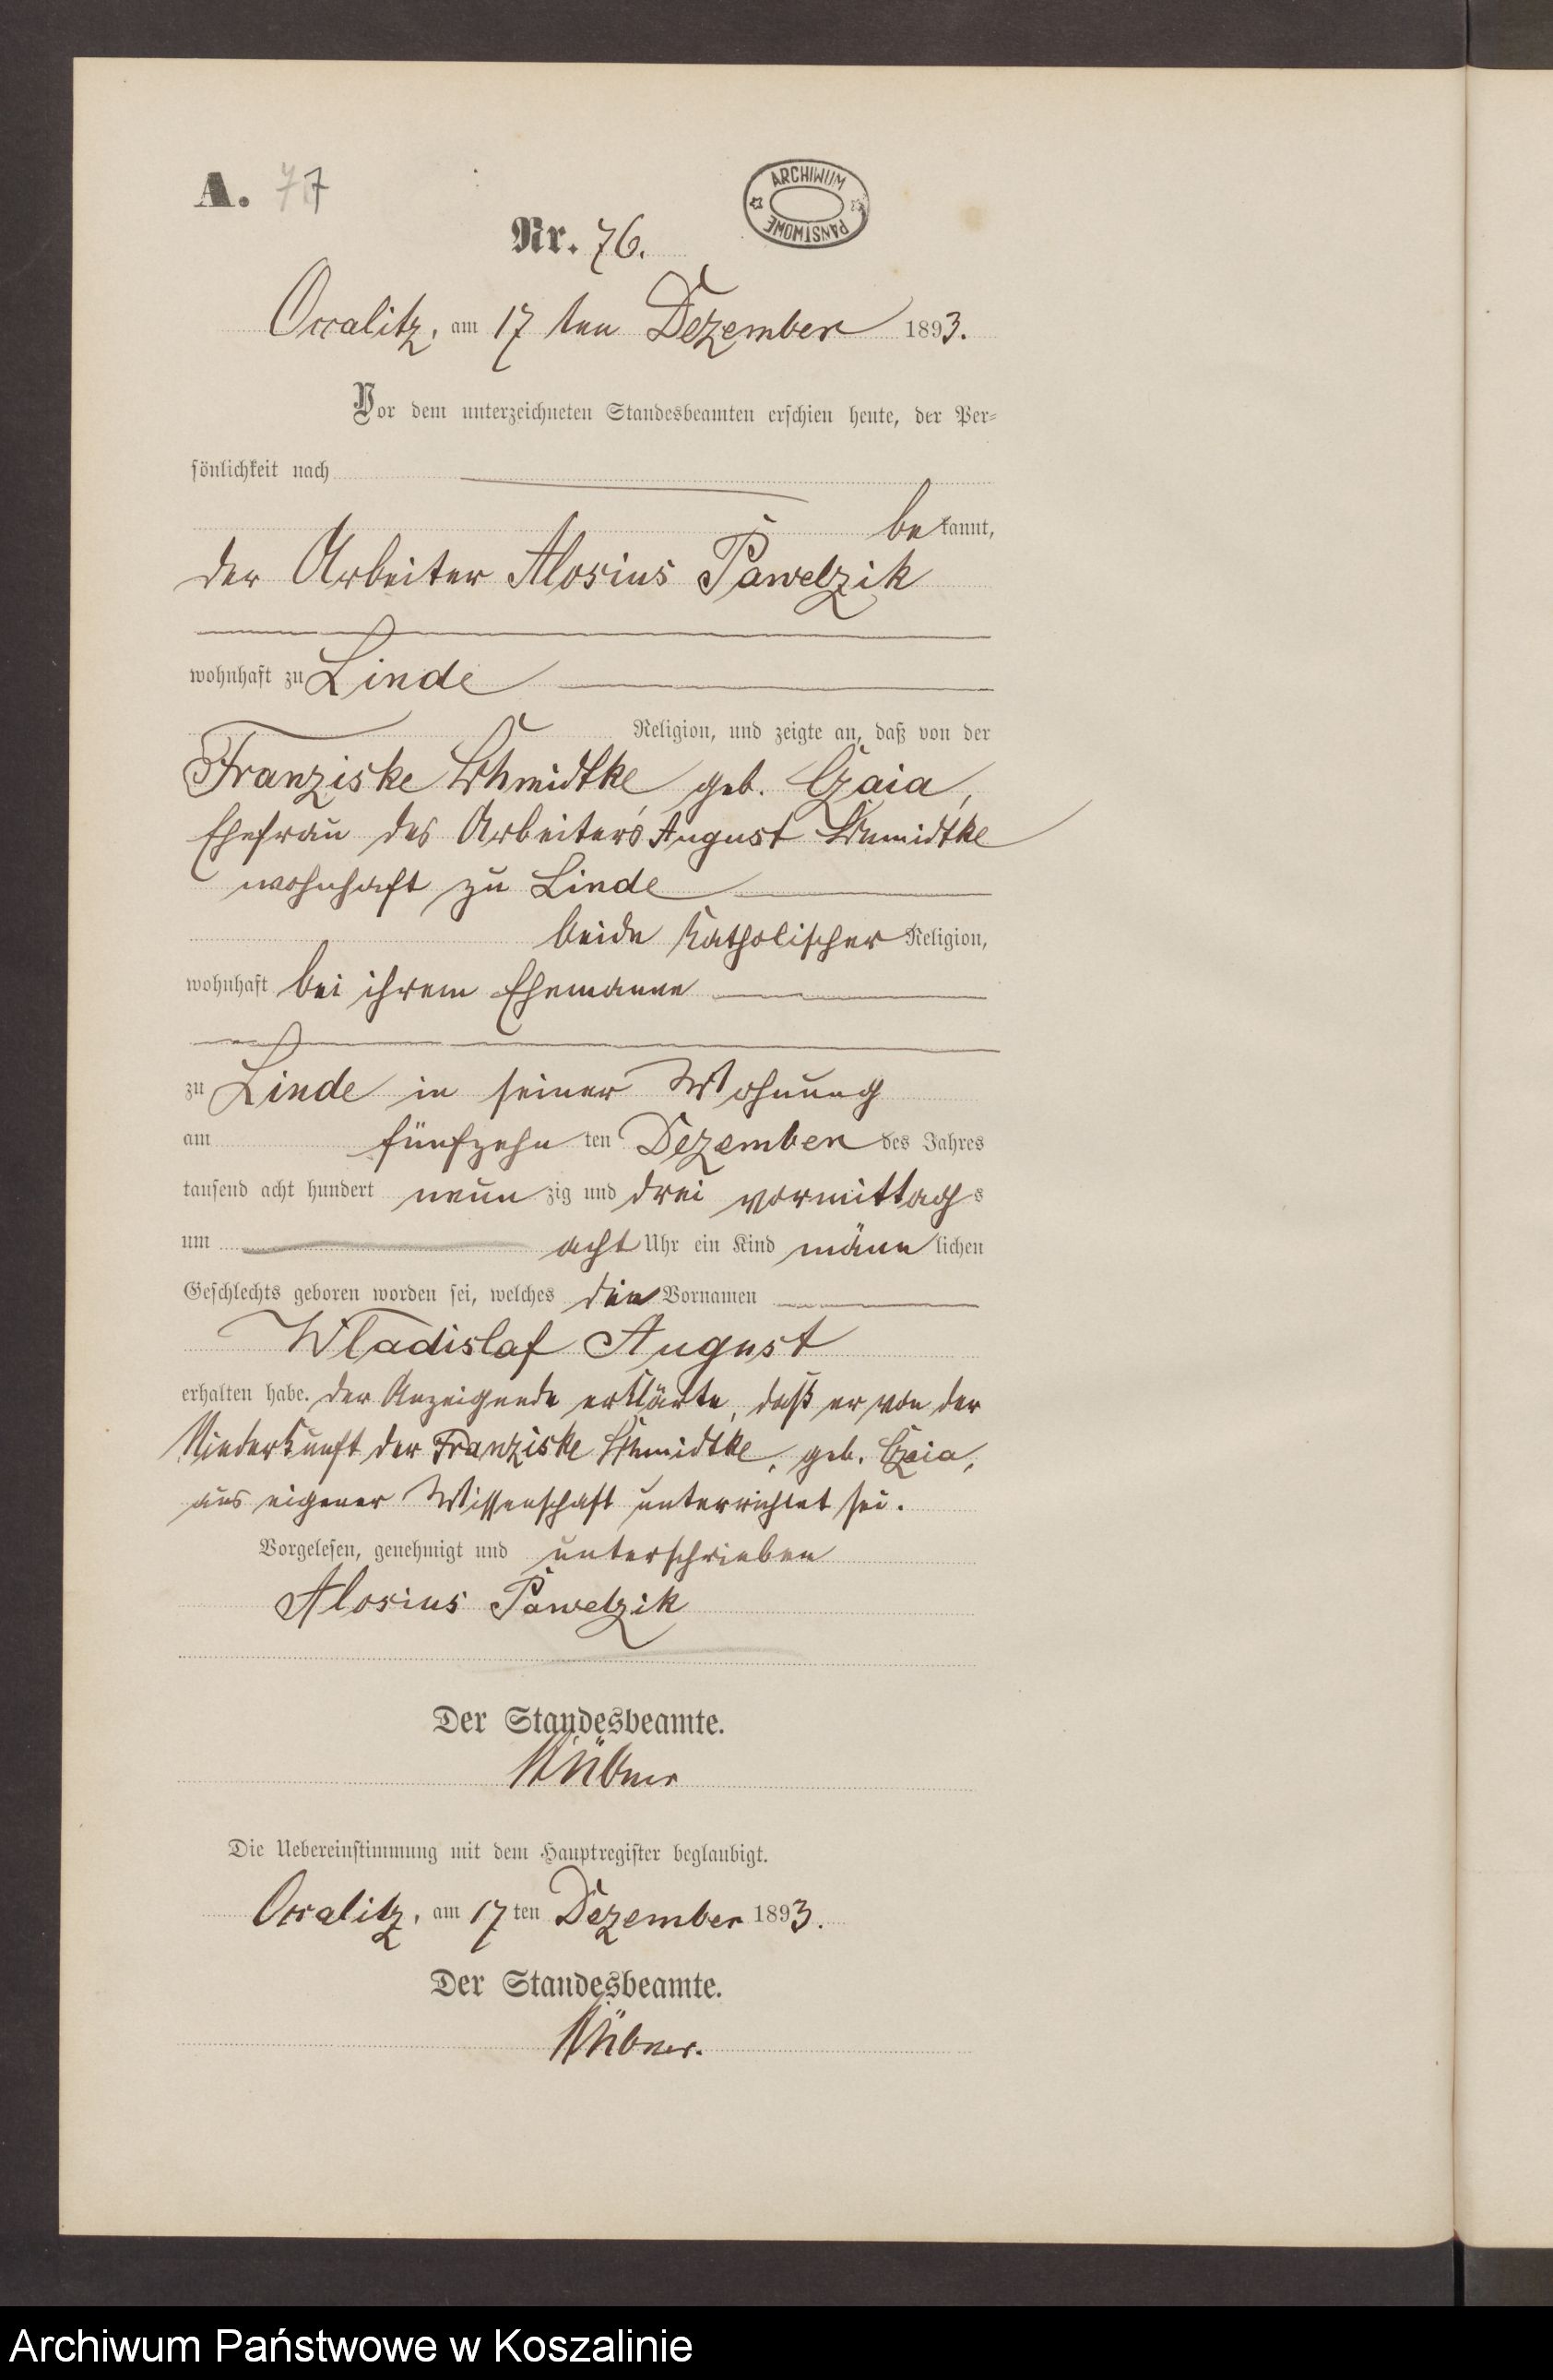 A. 77
ARCHIWUM PAŃSTWOWE
Nr. 76.
Occalitz, am 17 ten Dezember 1893.
Vor dem unterzeichneten Standesbeamten erschien heute, der Per-
sönlichkeit nach
bekannt,
der Arbeiter Alosius Pawelzik
wohnhaft zu Linde
Religion, und zeigte an, daß von der
Franziske Schmidtke geb. Czaia,
Ehefrau des Arbeiters August Schmidtke
wohnhaft zu Linde
beide katholischer Religion,
wohnhaft bei ihrem Ehemanne
zu Linde in seiner Wohnung
am fünfzehn ten Dezember des Jahres
tausend acht hundert neun zig und drei vormittags
um acht Uhr ein Kind männlichen
Geschlechts geboren worden sei, welches die Vornamen
Wladislaf August
erhalten habe. Der Anzeigende erklärte, daß er von der
Niederkunft der Franziske Schmidtke, geb. Czaia,
aus eigener Wissenschaft unterrichtet sei.
Vorgelesen, genehmigt und unterschrieben
Alosius Pawelzik
Der Standesbeamte.
Die Uebereinstimmung mit dem Hauptregister beglaubigt.
Occalitz, am 17 ten Dezember 1893.
Der Standesbeamte.
Archiwum Państwowe w Koszalinie